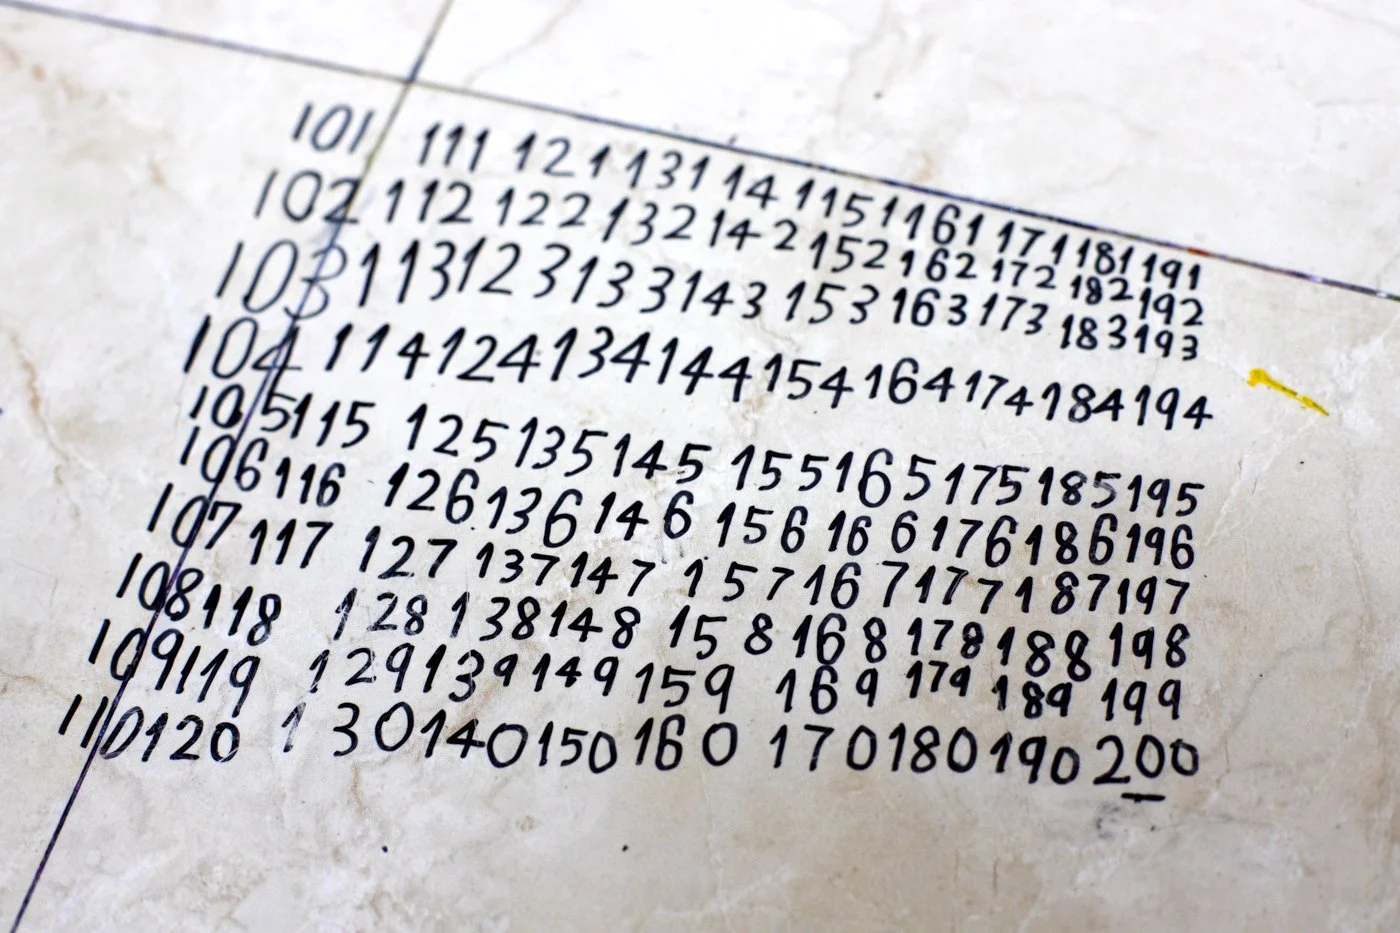 101 111 121 131 141 151 161 171 181 191
102 112 122 132 142 152 162 172 182 192
103 113 123 133 143 153 163 173 183 193
104 114 124 134 144 154 164 174 184 194
105 115 125 135 145 155 165 175 185 195
106 116 126 136 146 156 166 176 186 196
107 117 127 137 147 157 167 177 187 197
108 118 128 138 148 158 168 178 188 198
109 119 129 139 149 159 169 179 189 199
110 120 130 140 150 160 170 180 190 200